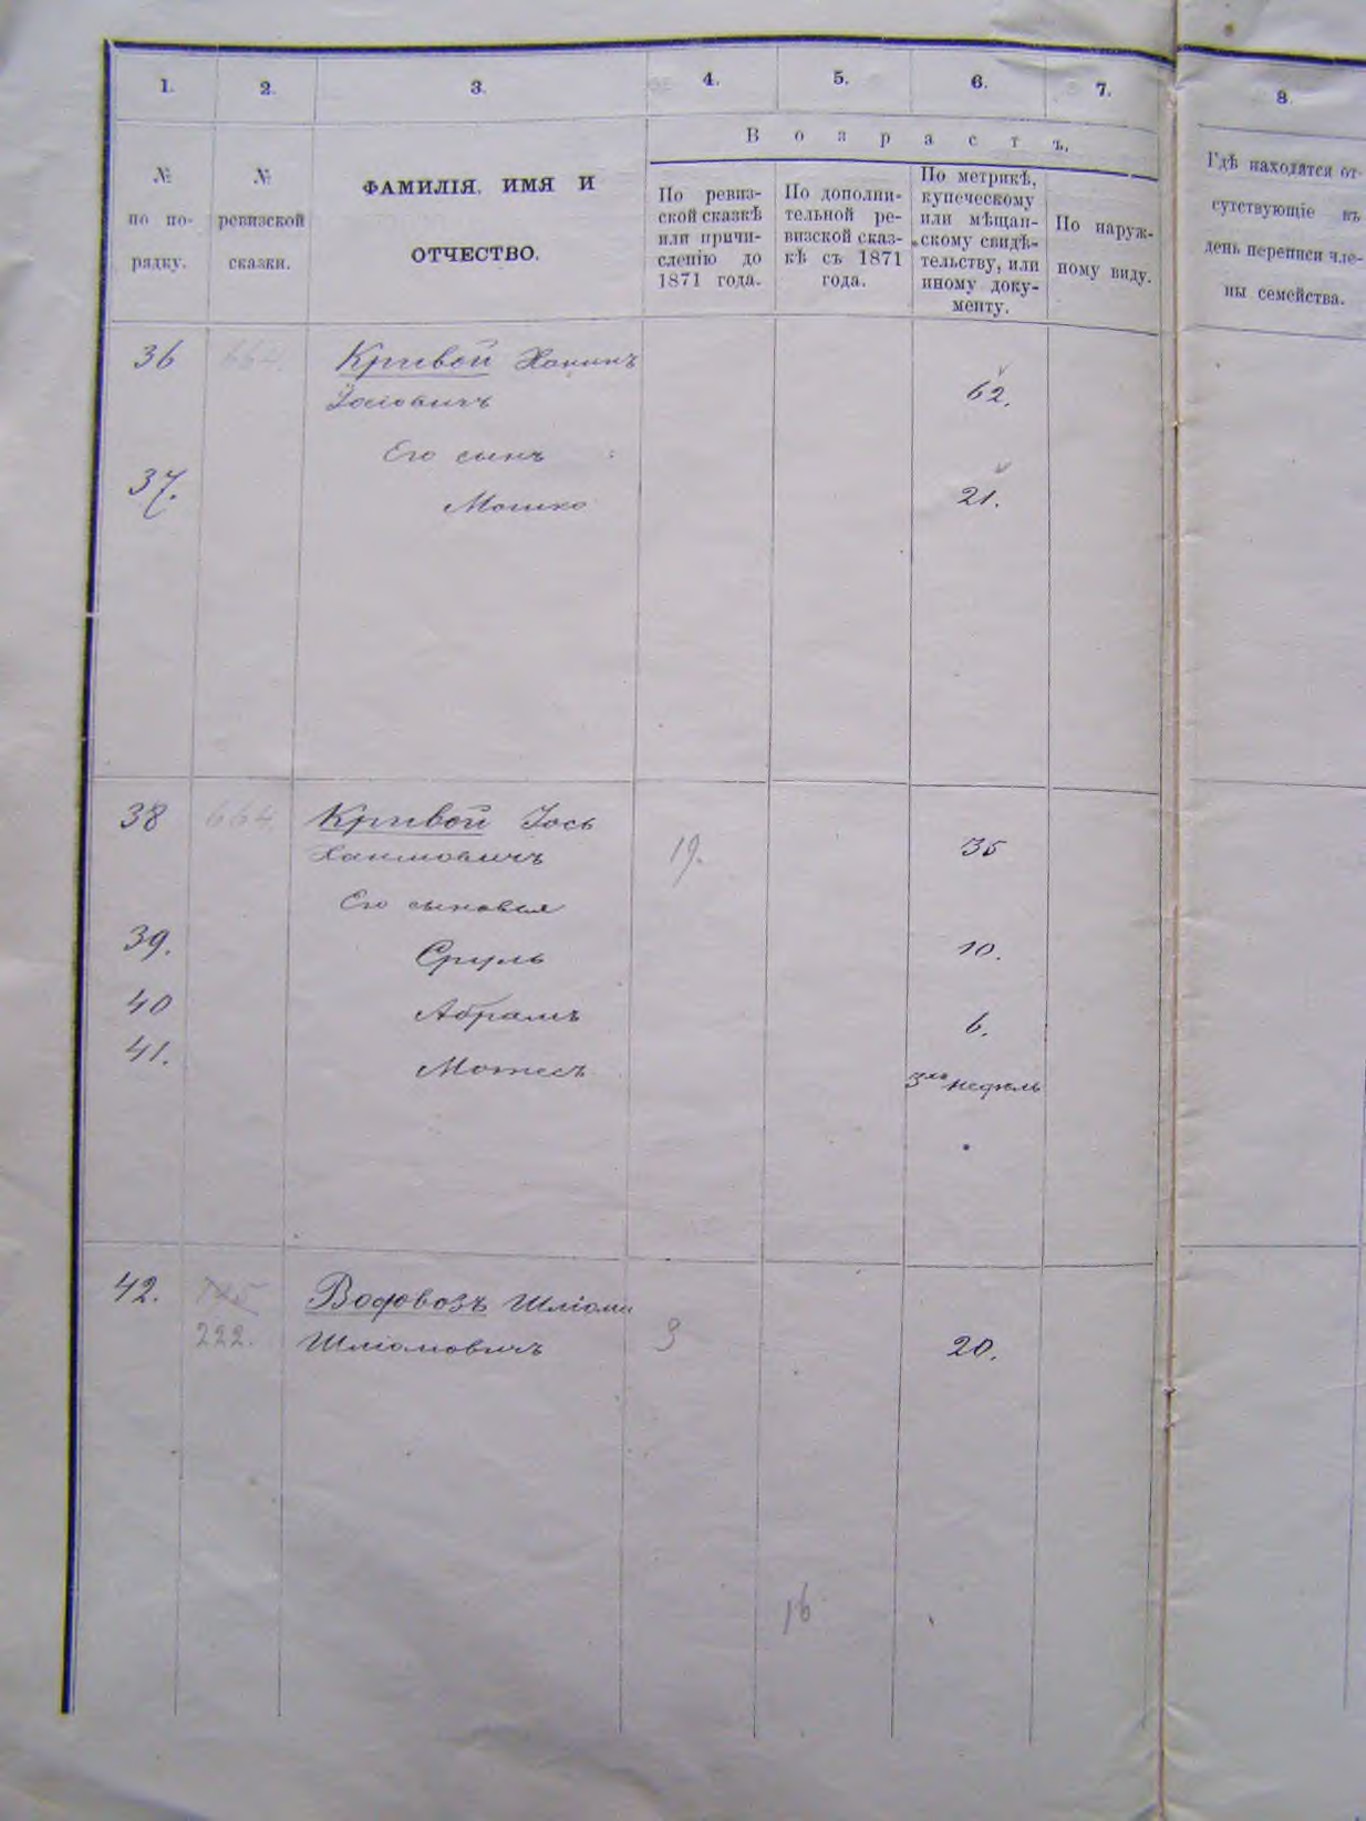 1. 2. 3. 4. 5. 6. 7. 8.
В о з р а с т ъ.
№ по порядку.
№ ревизской сказки.
ФАМИЛІЯ, ИМЯ И
ОТЧЕСТВО.
По ревиз-
ской сказкѣ
или причи-
сленію до
1871 года.
По дополни-
тельной ре-
визской сказ-
кѣ съ 1871
года.
По метрикѣ,
купеческому
или мѣщан-
скому свидѣ-
тельству, или
иному доку-
менту.
По наруж-
ному виду.
Гдѣ находятся от-
сутствующіе въ
день переписи чле-
ны семейства.
36 664. Кривой Ханинъ
Іосіовичъ 62.
Его сынъ
37. Мошко 21.
38 664. Кривой Іось
Хаимовичъ 19. 35
Его сыновья
39. Сруль 10.
40 Абрамъ 6.
41. Мотесъ 3хъ недѣль
42. 222. Водовозъ Шліома
Шліомовичъ 9 20.
16